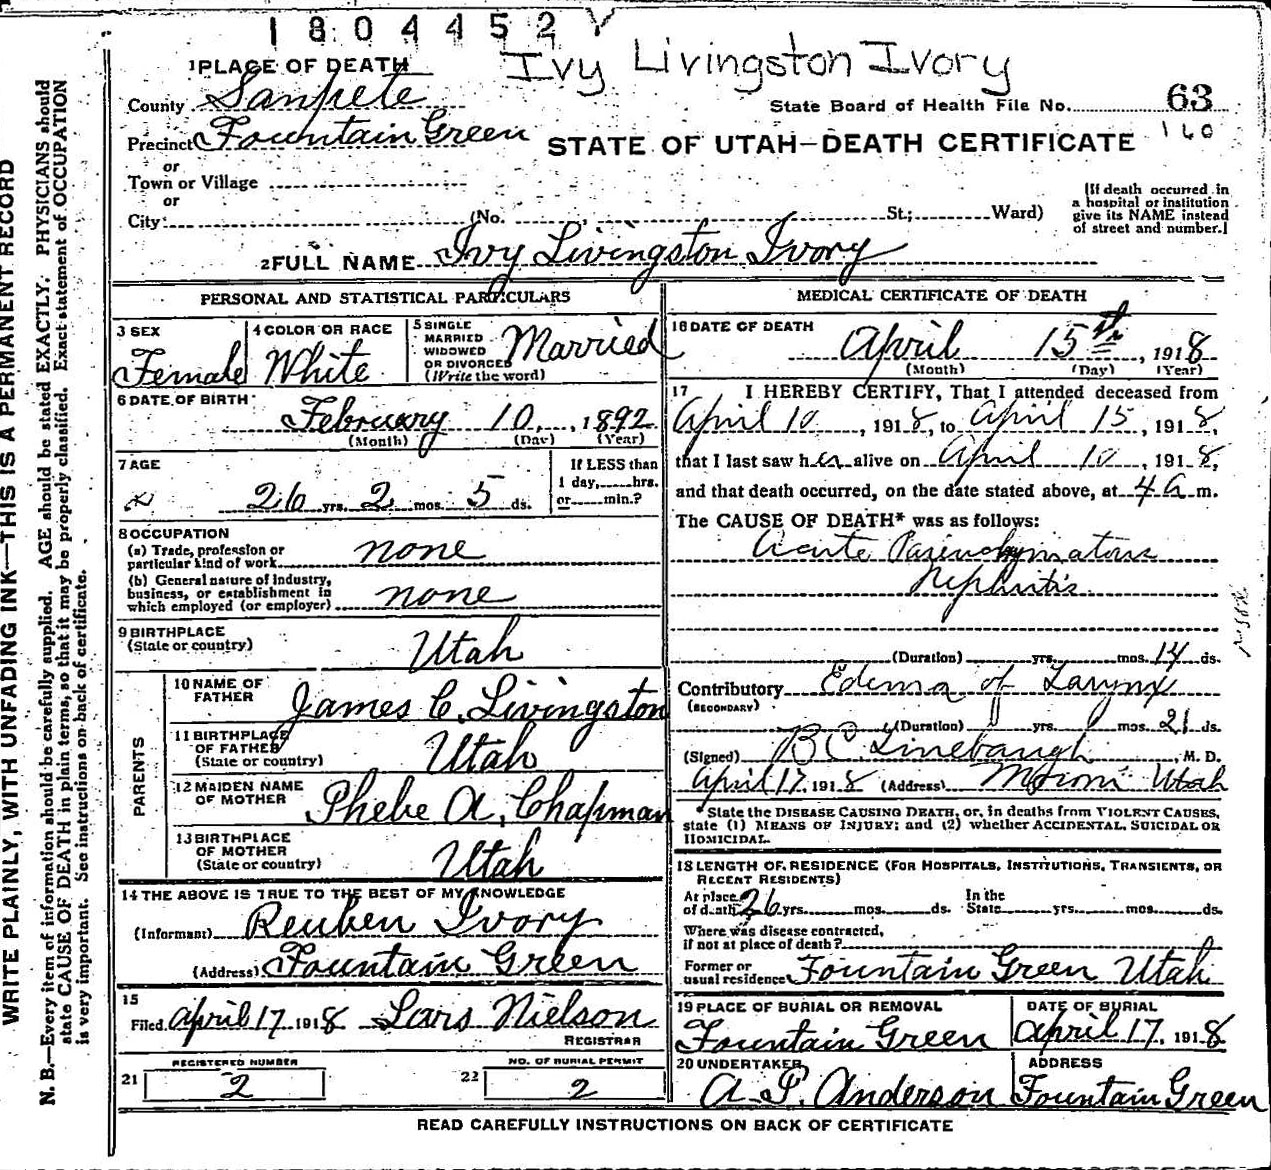 1804452
Ivy Livingston Ivory
1 PLACE OF DEATH
County Sanpete
State Board of Health File No. 63
160
Precinct Fountain Green
STATE OF UTAH—DEATH CERTIFICATE
or
Town or Village
or
City (No. St.; Ward)
(If death occurred in
a hospital or institution
give its NAME instead
of street and number.)
2 FULL NAME Ivy Livingston Ivory
PERSONAL AND STATISTICAL PARTICULARS
3 SEX
Female
4 COLOR OR RACE
White
5 SINGLE
MARRIED
WIDOWED
OR DIVORCED
(Write the word)
Married
6 DATE OF BIRTH
February 10, 1892
(Month) (Day) (Year)
7 AGE
26 yrs. 2 mos. 5 ds.
If LESS than
1 day, hrs.
or min.?
8 OCCUPATION
(a) Trade, profession or
particular kind of work none
(b) General nature of industry,
business, or establishment in
which employed (or employer) none
9 BIRTHPLACE
(State or country) Utah
PARENTS
10 NAME OF
FATHER James C. Livingston
11 BIRTHPLACE
OF FATHER
(State or country) Utah
12 MAIDEN NAME
OF MOTHER Phebe A. Chapman
13 BIRTHPLACE
OF MOTHER
(State or country) Utah
14 THE ABOVE IS TRUE TO THE BEST OF MY KNOWLEDGE
(Informant) Reuben Ivory
(Address) Fountain Green
15
Filed April 17 1918 Lars Nielson
REGISTRAR
REGISTERED NUMBER
21 2
NO. OF BURIAL PERMIT
22 2
MEDICAL CERTIFICATE OF DEATH
16 DATE OF DEATH
April 15th, 1918
(Month) (Day) (Year)
17 I HEREBY CERTIFY, That I attended deceased from
April 10, 1918, to April 15, 1918,
that I last saw her alive on April 10, 1918,
and that death occurred, on the date stated above, at 4 a m.
The CAUSE OF DEATH* was as follows:
Acute Parenchymatous
Nephritis
(Duration) yrs. mos. 14 ds.
Contributory Edema of Larynx
(SECONDARY)
(Duration) yrs. mos. 21 ds.
(Signed) B C Linebaugh, M. D.
April 17, 1918 (Address) Moroni Utah
* State the DISEASE CAUSING DEATH, or, in deaths from VIOLENT CAUSES,
state (1) MEANS OF INJURY; and (2) whether ACCIDENTAL, SUICIDAL OR
HOMICIDAL.
18 LENGTH OF RESIDENCE (FOR HOSPITALS, INSTITUTIONS, TRANSIENTS, OR
RECENT RESIDENTS)
At place
of death 26 yrs. mos. ds.
In the
State yrs. mos. ds.
Where was disease contracted,
if not at place of death?
Former or
usual residence Fountain Green Utah
19 PLACE OF BURIAL OR REMOVAL
Fountain Green
DATE OF BURIAL
April 17, 1918
20 UNDERTAKER
A. P. Anderson
ADDRESS
Fountain Green
READ CAREFULLY INSTRUCTIONS ON BACK OF CERTIFICATE
WRITE PLAINLY, WITH UNFADING INK—THIS IS A PERMANENT RECORD
N. B.—Every item of information should be carefully supplied. AGE should be stated EXACTLY. PHYSICIANS should
state CAUSE OF DEATH in plain terms, so that it may be properly classified. Exact statement of OCCUPATION
is very important. See instructions on back of certificate.